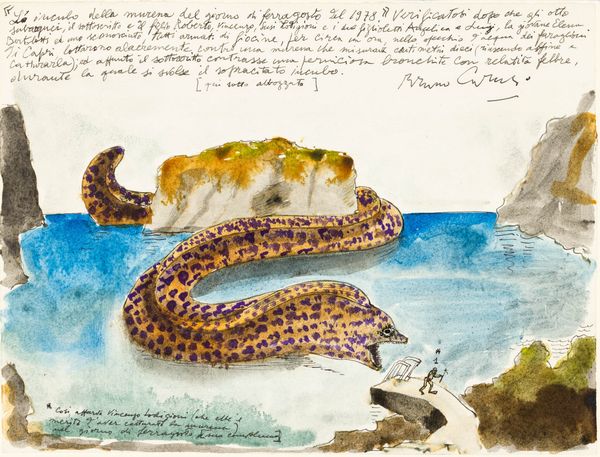 "Lo incubo della murena del giorno di ferragosto del 1978." Verificatosi dopo che gli otto
subacquei, il sottoscritto e il figlio Roberto, Vincenzo, Susi Lodigioni e i due figlioletti Angelica e Luigi, la giovane Elena
Bertoletti ed uno sconosciuto tutti armati di fiocina per circa un'ora, nello specchio d'acqua dei faraglioni
di Capri lottarono alacremente contro una murena che misurava centimetri dieci (riuscendo affine a
catturarla) ed appunto il sottoscritto contrasse una perniciosa bronchite con relativa febbre,
durante la quale si svolse il sopracitato incubo.
[qui sotto abbozzato]
Bruno
*
* Così affardo Vincenzo Lodigioni (che ebbe il
merito d'aver catturato la murena)
nel giorno di ferragosto